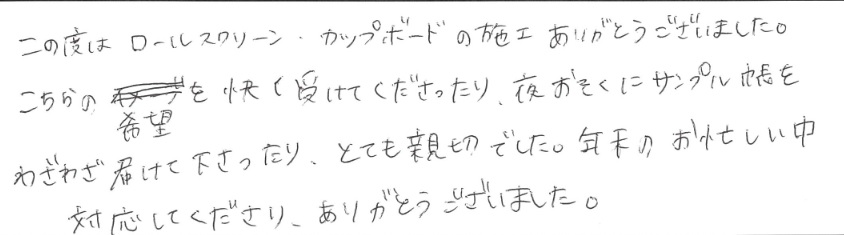 この度は ロールスクリーン・カップボードの施工ありがとうございました。
こちらの希望を快く受けてくださったり、夜おそくにサンプル帳を
わざわざ届けて下さったり、とても親切でした。年末のお忙しい中
対応してくださり、ありがとうございました。